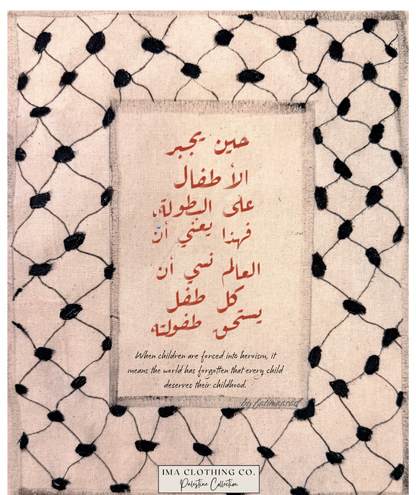 حين يجبر
الأطفال
على البطولة،
فهذا يعني أن
العالم نسي أن
كل طفل
يستحق طفولته
When children are forced into heroism, it
means the world has forgotten that every child
deserves their childhood.
IMA CLOTHING CO.
Palestine Collection